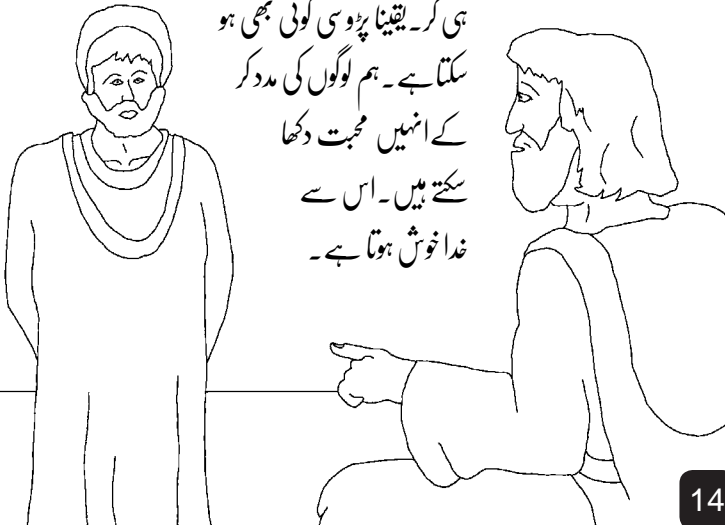 ہی کر۔ یقینا پڑوسی کوئی بھی ہو
سکتا ہے۔ ہم لوگوں کی مدد کر
کے انہیں محبت دکھا
سکتے ہیں۔ اس سے
خدا خوش ہوتا ہے۔
14